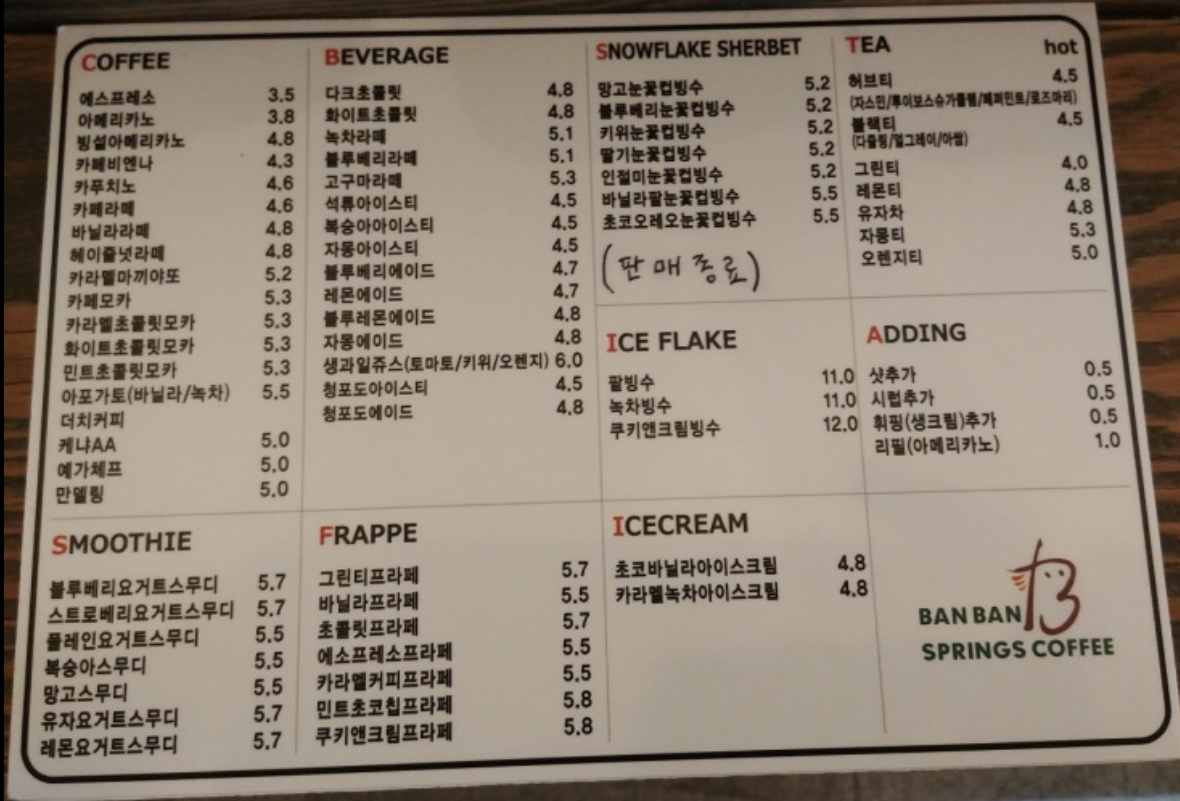 COFFEE
에스프레소 3.5
아메리카노 3.8
빙설아메리카노 4.8
카페비엔나 4.3
카푸치노 4.6
카페라떼 4.6
바닐라라떼 4.8
헤이즐넛라떼 4.8
카라멜마끼야또 5.2
카페모카 5.3
카라멜초콜릿모카 5.3
화이트초콜릿모카 5.3
민트초콜릿모카 5.3
아포가토(바닐라/녹차) 5.5
더치커피
케냐AA 5.0
예가체프 5.0
만델링 5.0
BEVERAGE
다크초콜릿 4.8
화이트초콜릿 4.8
녹차라떼 5.1
블루베리라떼 5.1
고구마라떼 5.3
석류아이스티 4.5
복숭아아이스티 4.5
자몽아이스티 4.5
블루베리에이드 4.7
레몬에이드 4.7
블루레몬에이드 4.8
자몽에이드 4.8
생과일쥬스(토마토/키위/오렌지) 6.0
청포도아이스티 4.5
청포도에이드 4.8
SNOWFLAKE SHERBET
망고눈꽃컵빙수 5.2
블루베리눈꽃컵빙수 5.2
키위눈꽃컵빙수 5.2
딸기눈꽃컵빙수 5.2
인절미눈꽃컵빙수 5.2
바닐라팥눈꽃컵빙수 5.5
초코오레오눈꽃컵빙수 5.5
(판매종료)
TEA hot
허브티 4.5
(자스민/루이보스슈가플럼/페퍼민트/로즈마리)
블랙티 4.5
(다즐링/얼그레이/아쌈)
그린티 4.0
레몬티 4.8
유자차 4.8
자몽티 5.3
오렌지티 5.0
ICE FLAKE
팥빙수 11.0
녹차빙수 11.0
쿠키앤크림빙수 12.0
ADDING
샷추가 0.5
시럽추가 0.5
휘핑(생크림)추가 0.5
리필(아메리카노) 1.0
SMOOTHIE
블루베리요거트스무디 5.7
스트로베리요거트스무디 5.7
플레인요거트스무디 5.5
복숭아스무디 5.5
망고스무디 5.5
유자요거트스무디 5.7
레몬요거트스무디 5.7
FRAPPE
그린티프라페 5.7
바닐라프라페 5.5
초콜릿프라페 5.7
에소프레소프라페 5.5
카라멜커피프라페 5.5
민트초코칩프라페 5.8
쿠키앤크림프라페 5.8
ICECREAM
초코바닐라아이스크림 4.8
카라멜녹차아이스크림 4.8
BAN BAN
SPRINGS COFFEE